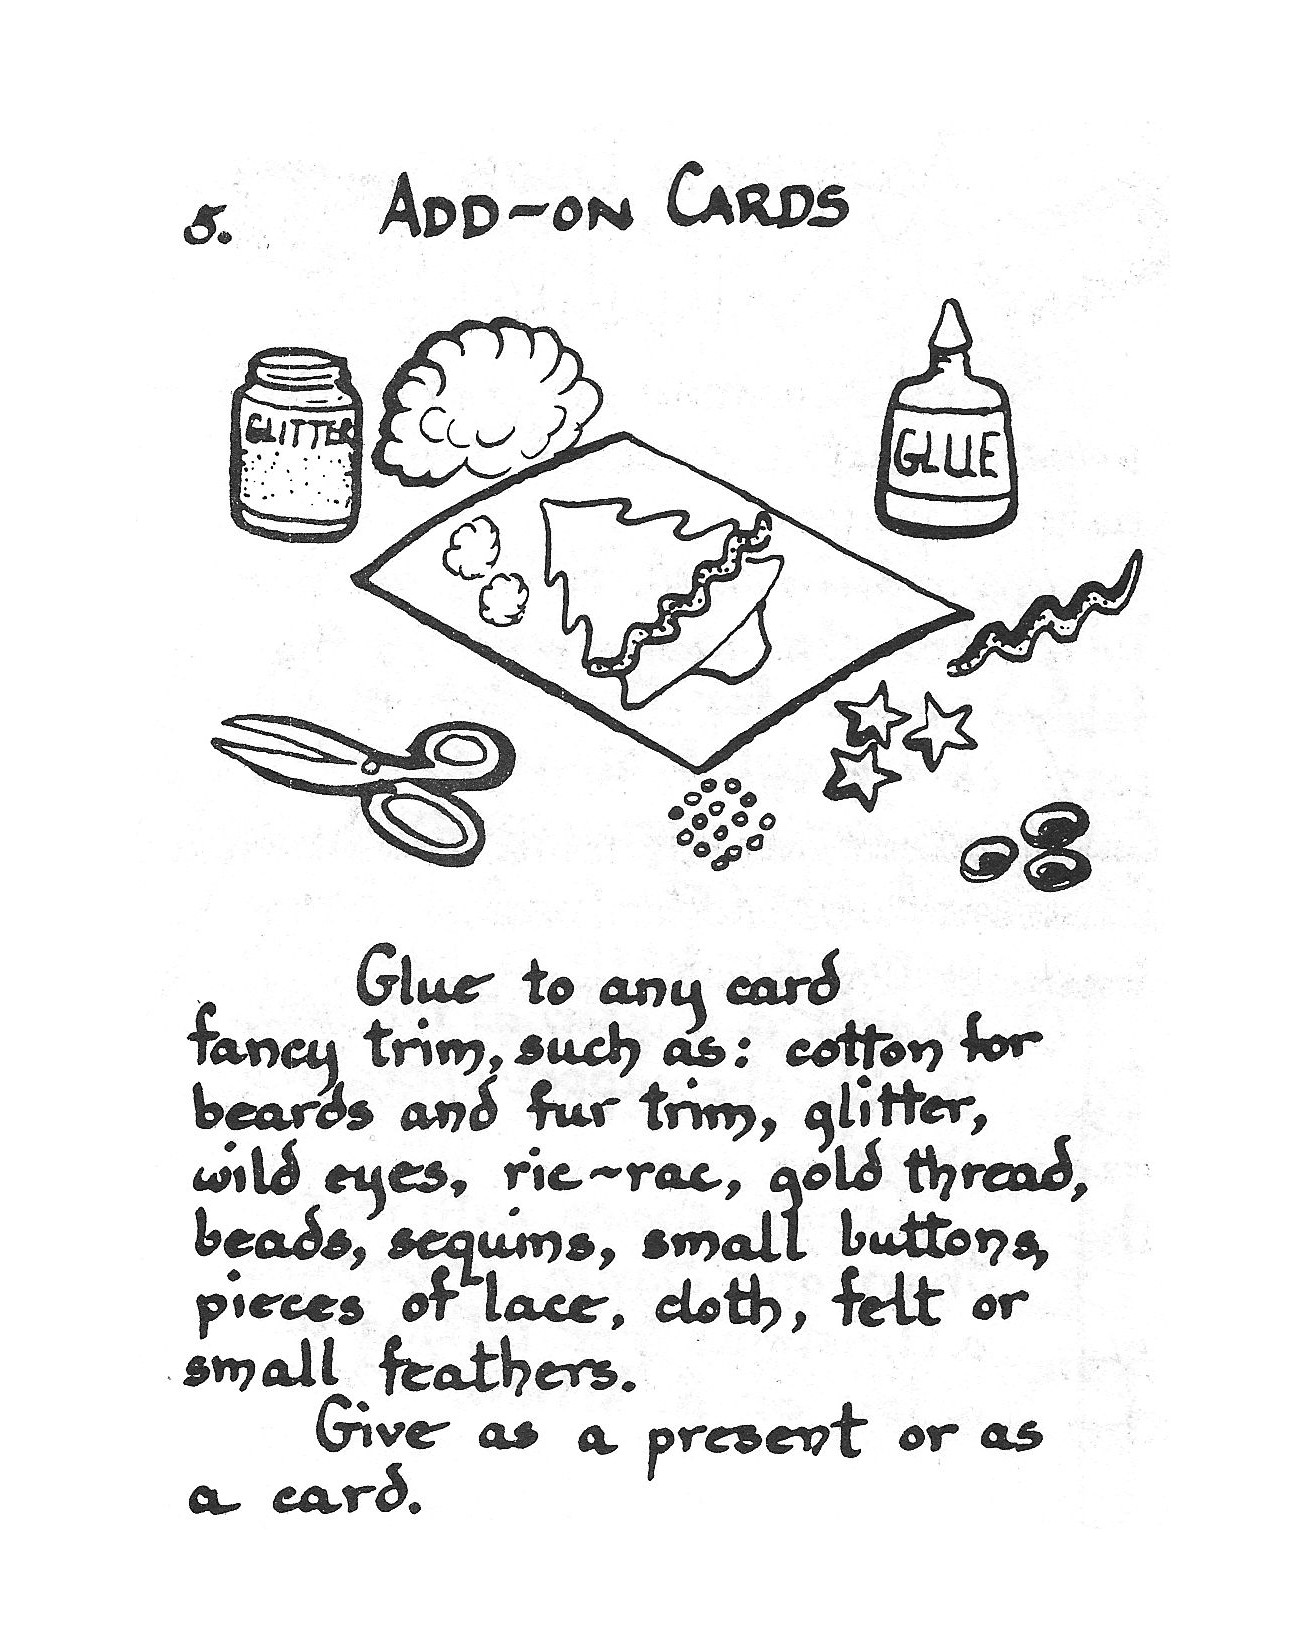 5. ADD-ON CARDS
GLITTER
GLUE
Glue to any card
fancy trim, such as: cotton for
beards and fur trim, glitter,
wild eyes, ric~rac, gold thread,
beads, sequins, small buttons,
pieces of lace, cloth, felt or
small feathers.
Give as a present or as
a card.